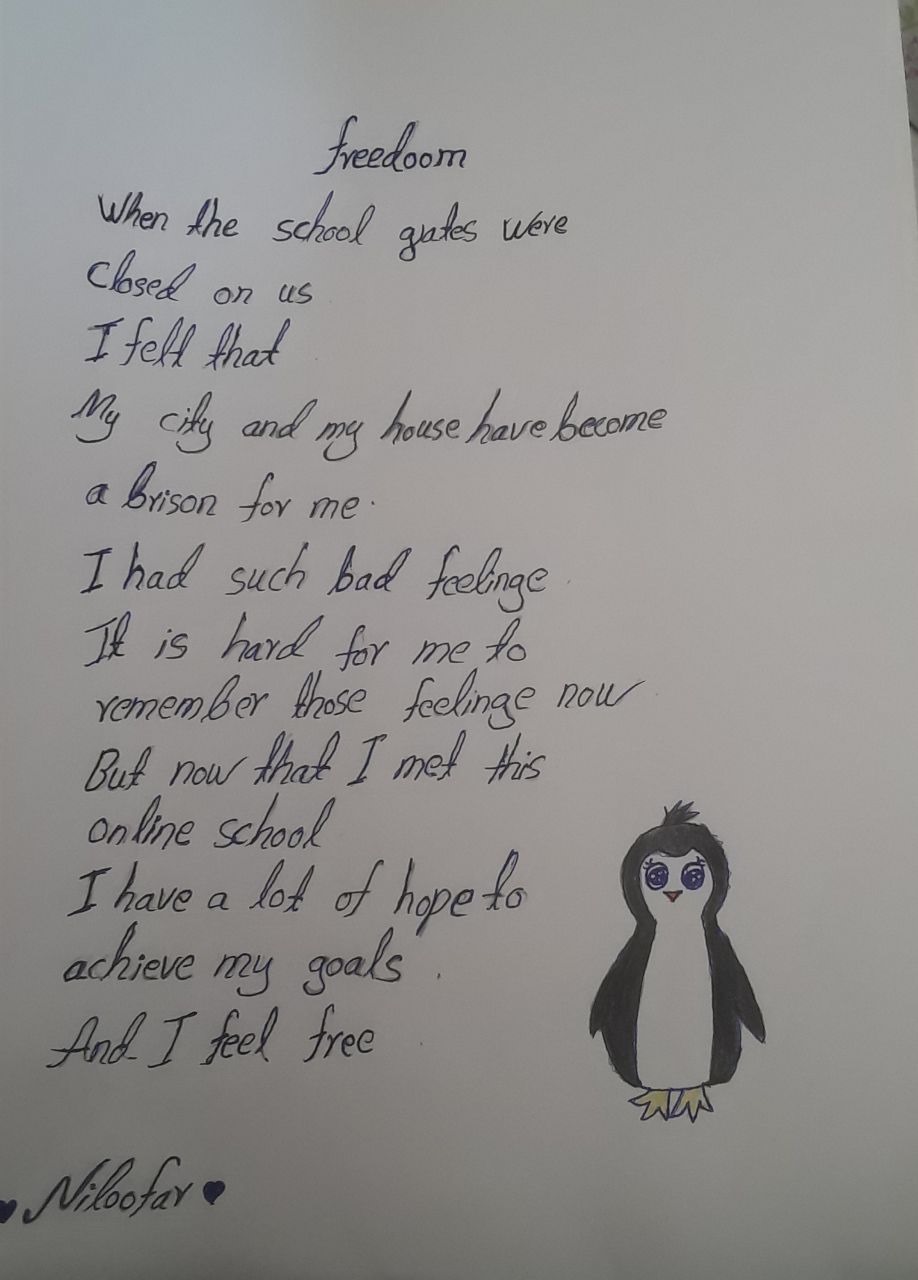 freedoom
When the school gates were
Closed on us
I felt that
My city and my house have become
a brison for me.
I had such bad feelinge
It is hard for me to
remember those feelinge now
But now that I met this
online school
I have a lot of hope to
achieve my goals.
And I feel free
♥ Niloofar ♥